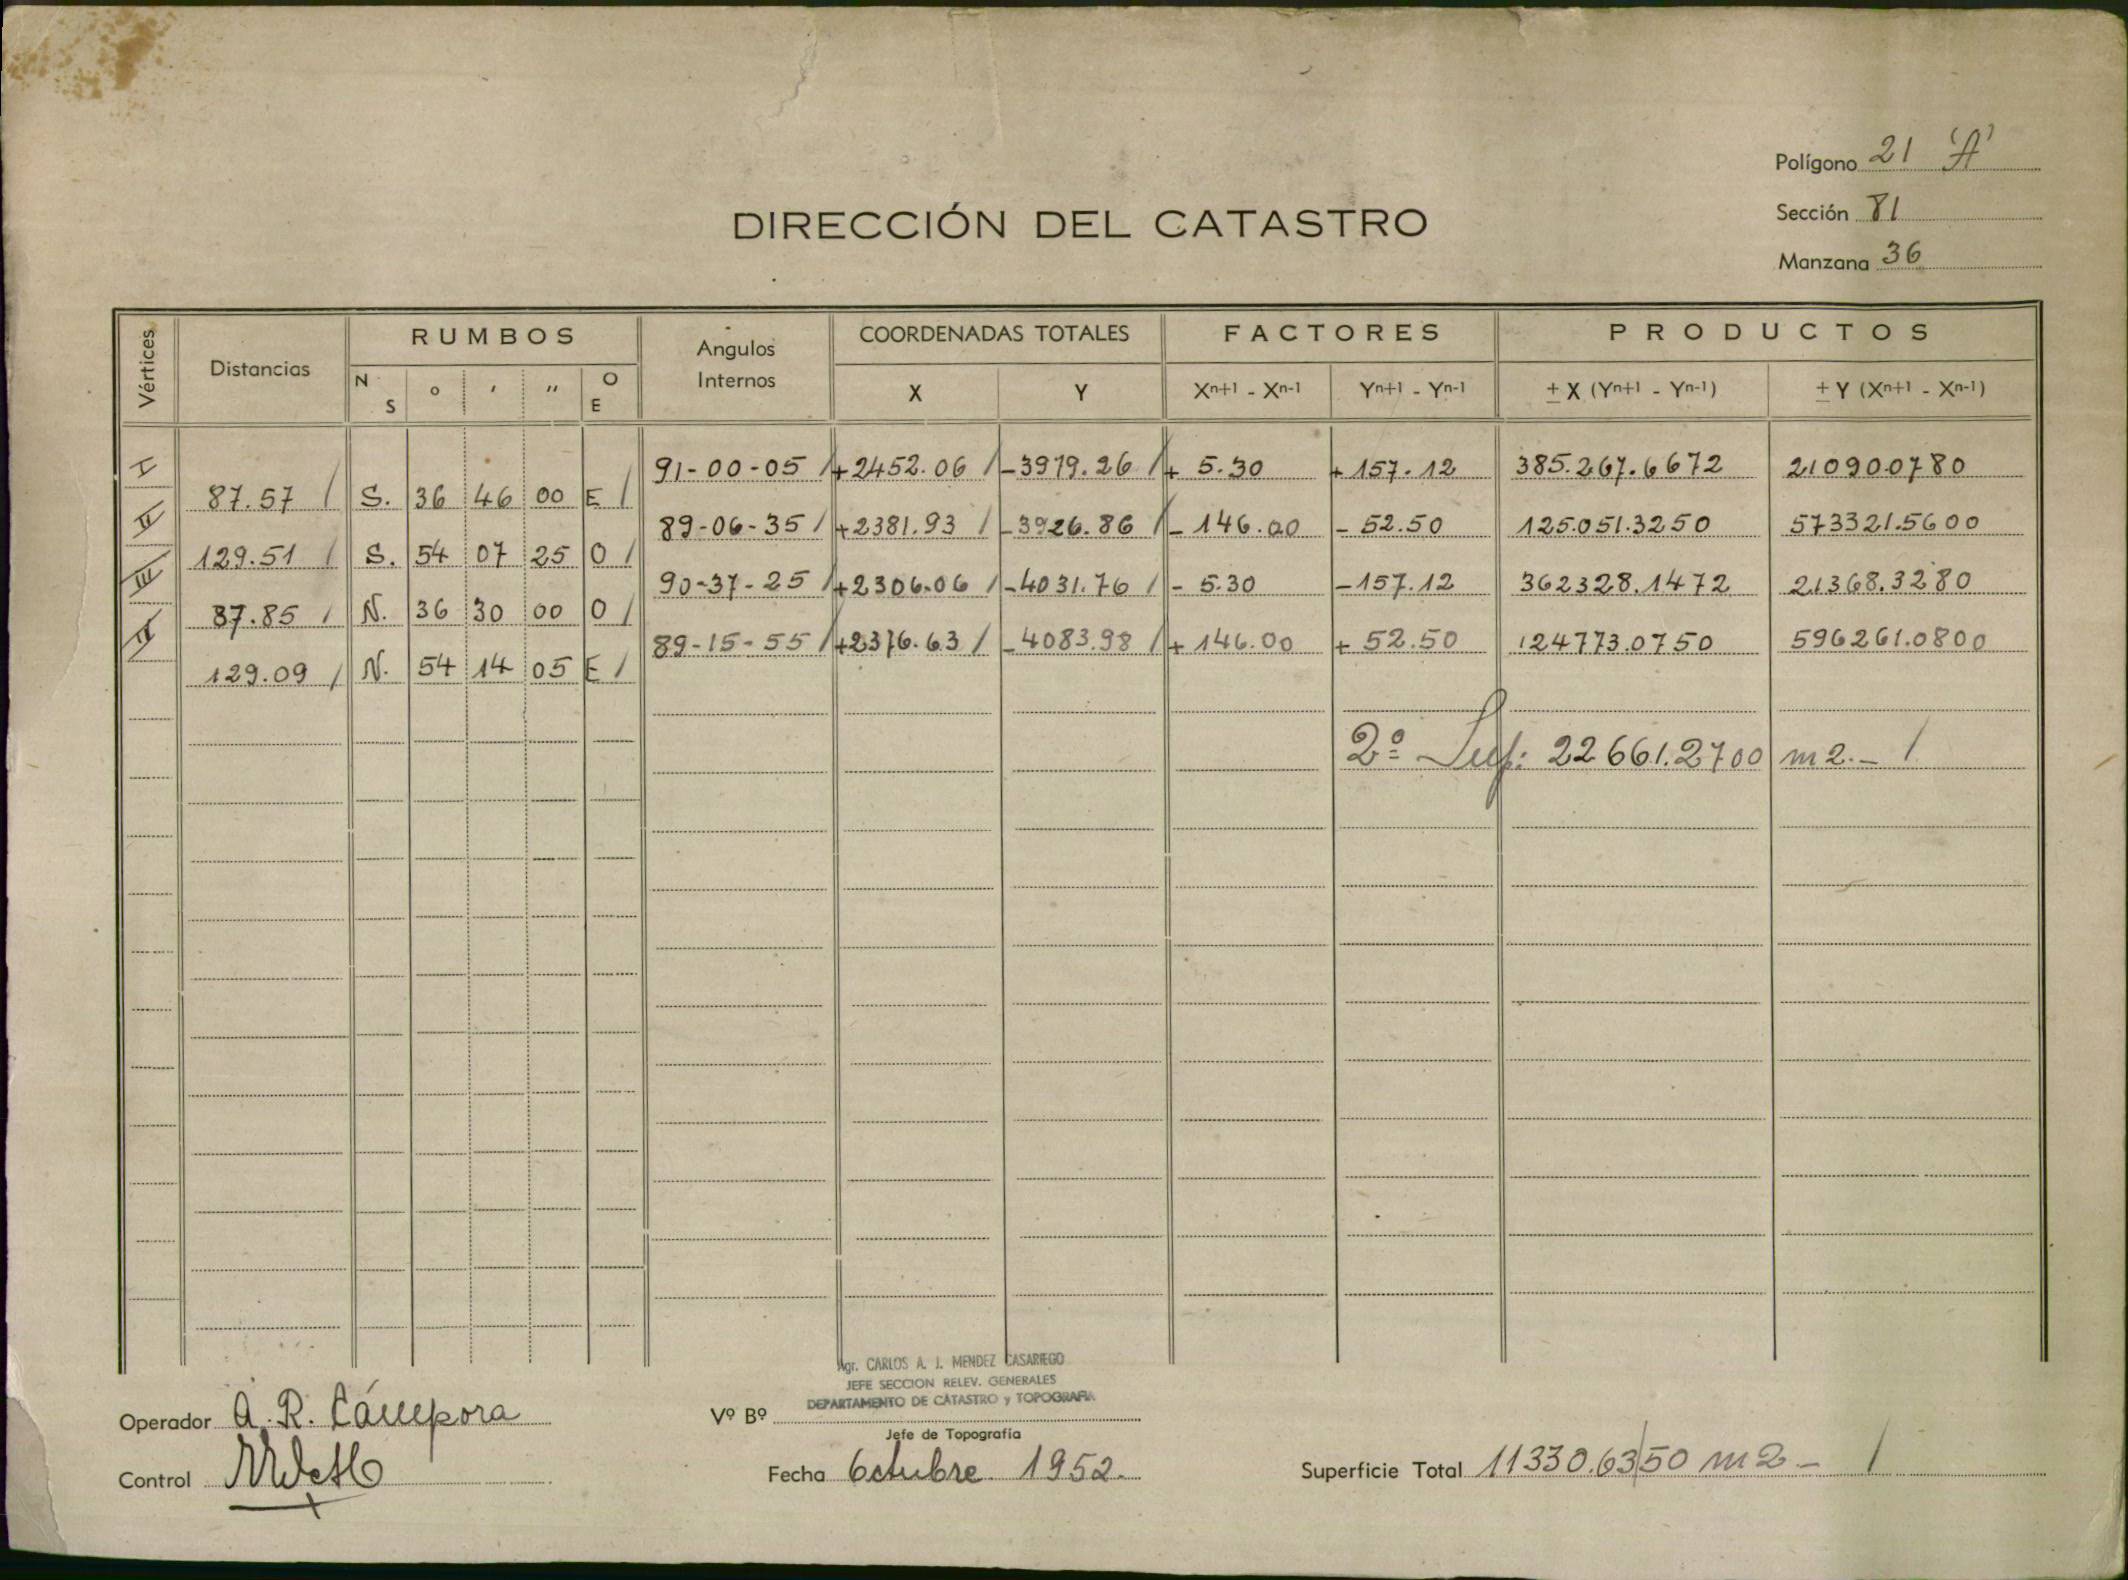 Polígono 21 'A'
Sección 81
Manzana 36
DIRECCIÓN DEL CATASTRO
Vértices Distancias RUMBOS Angulos Internos COORDENADAS TOTALES FACTORES PRODUCTOS
N S ° ' " O E X Y Xn+1 - Xn-1 Yn+1 - Yn-1 ± X (Yn+1 - Yn-1) ± Y (Xn+1 - Xn-1)
I 91-00-05 / +2452.06 / -3979.26 / + 5.30 + 157.12 385.267.6672 21090.0780
87.57 / S. 36 46 00 E /
II 89-06-35 / +2381.93 / -3926.86 / - 146.00 - 52.50 125.051.3250 573321.5600
129.51 / S. 54 07 25 O /
III 90-37-25 / +2306.06 / -4031.76 / - 5.30 -157.12 362328.1472 21368.3280
87.85 / N. 36 30 00 O /
IV 89-15-55 / +2376.63 / -4083.98 / + 146.00 + 52.50 124773.0750 596261.0800
129.09 / N. 54 14 05 E /
2º Sup: 22661.2700 m2.- /
Agr. CARLOS A. J. MENDEZ CASARIEGO
JEFE SECCION RELEV. GENERALES
DEPARTAMENTO DE CATASTRO y TOPOGRAFIA
Operador A. R. Cámpora
Vº Bº
Jefe de Topografía
Control
Fecha Octubre 1952.
Superficie Total 11330.63|50 m2 - /